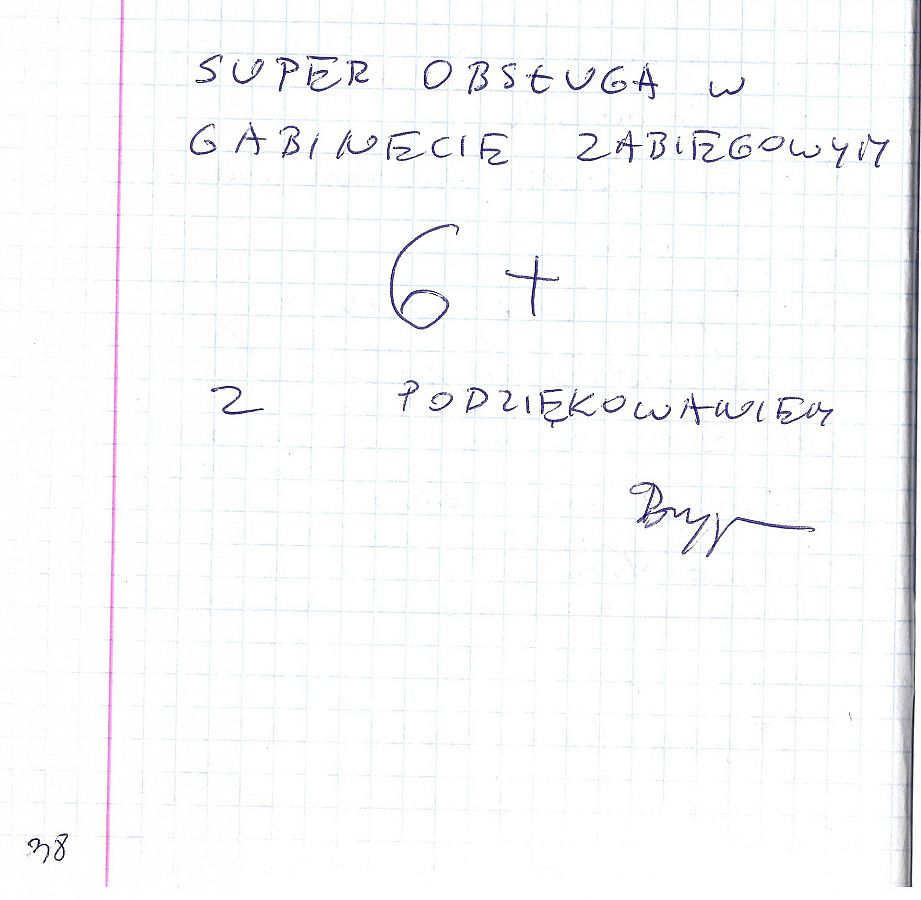 SUPER OBSŁUGA W
GABINECIE ZABIEGOWYM
6+
Z PODZIĘKOWANIEM
38